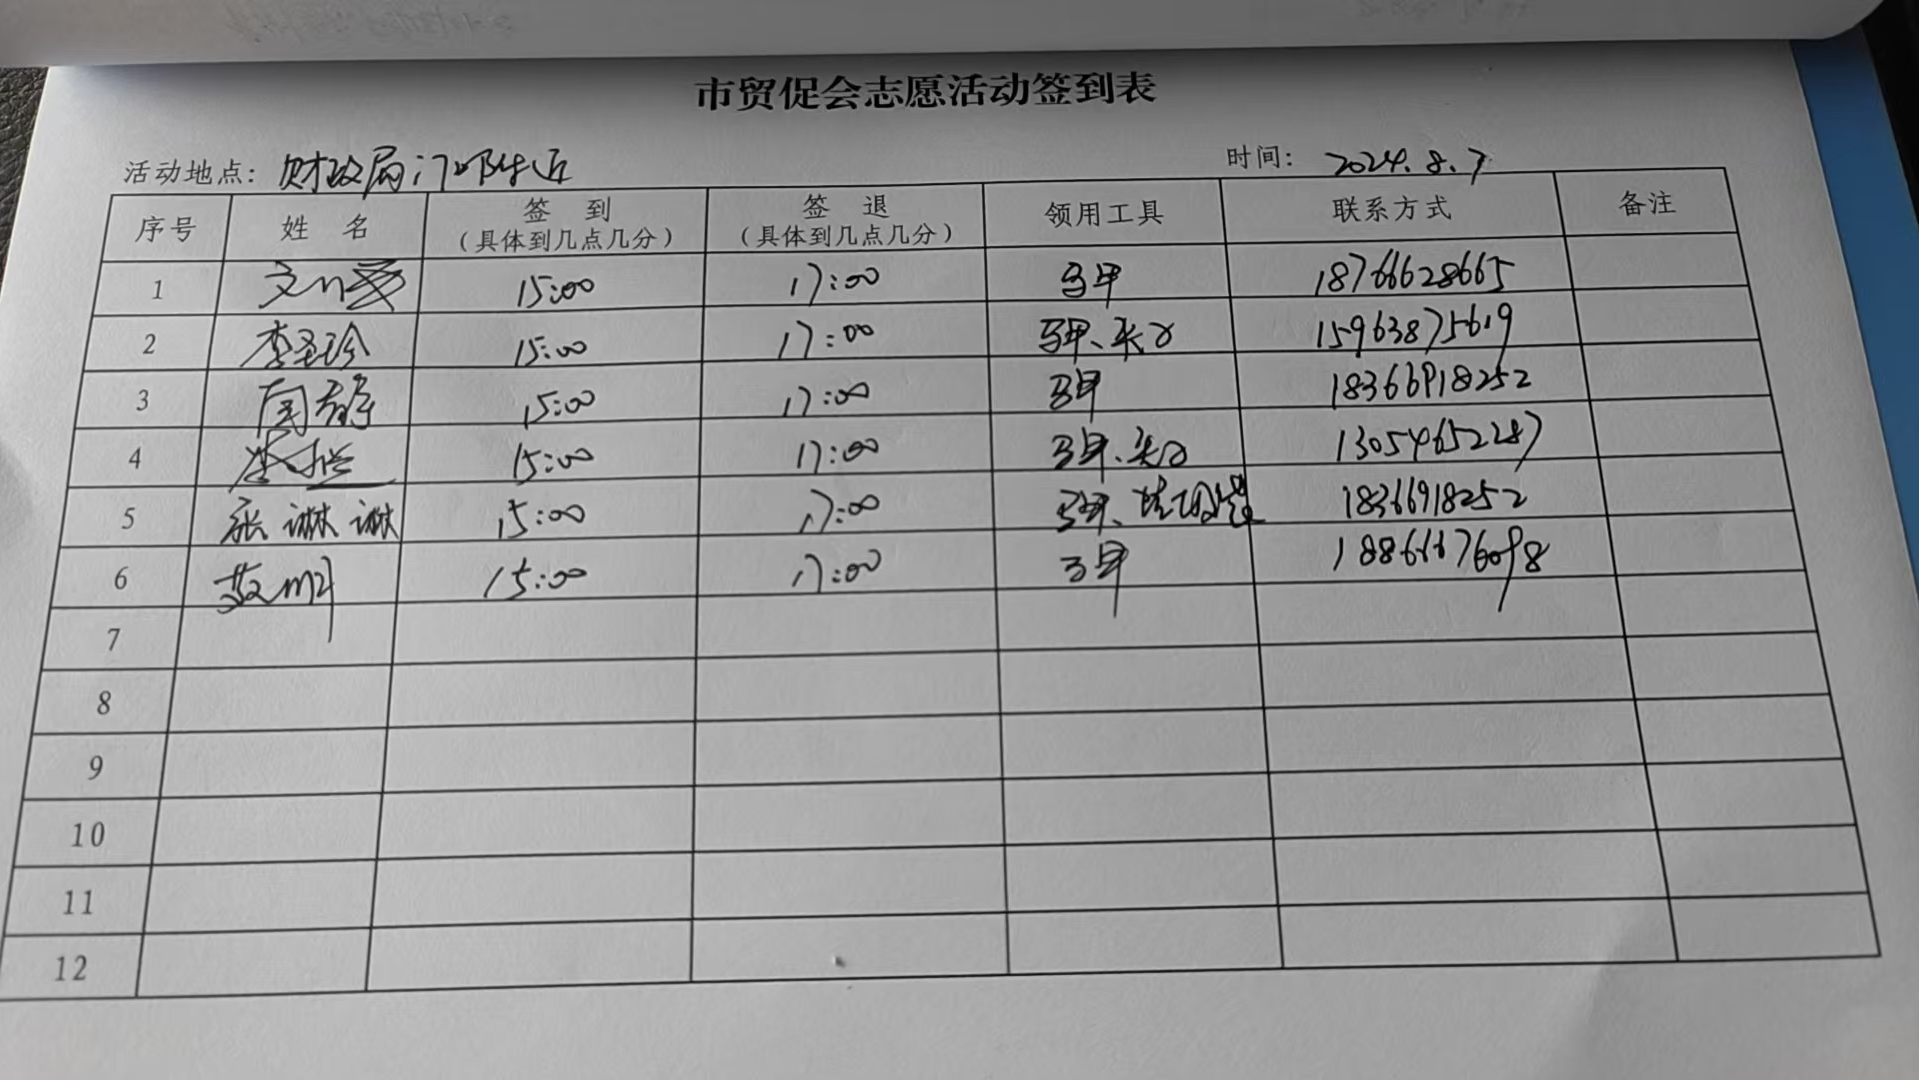 市贸促会志愿活动签到表
活动地点: 财政局门口附近 时间: 2024.8.7
序号 姓名 签到 (具体到几点几分) 签退 (具体到几点几分) 领用工具 联系方式 备注
1 15:00 17:00 马甲 18766628665
2 李圣玲 15:00 17:00 马甲、夹子 15963875619
3 周静 15:00 17:00 马甲 18366918252
4 15:00 17:00 马甲、夹子 13054652287
5 张琳琳 15:00 17:00 马甲、垃圾袋 18366918252
6 15:00 17:00 马甲 18866176098
7
8
9
10
11
12